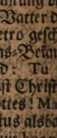 Vatter d
etro gesch
ns-Bekan
d: Tu
st Christ
ttes! M
tus alsba